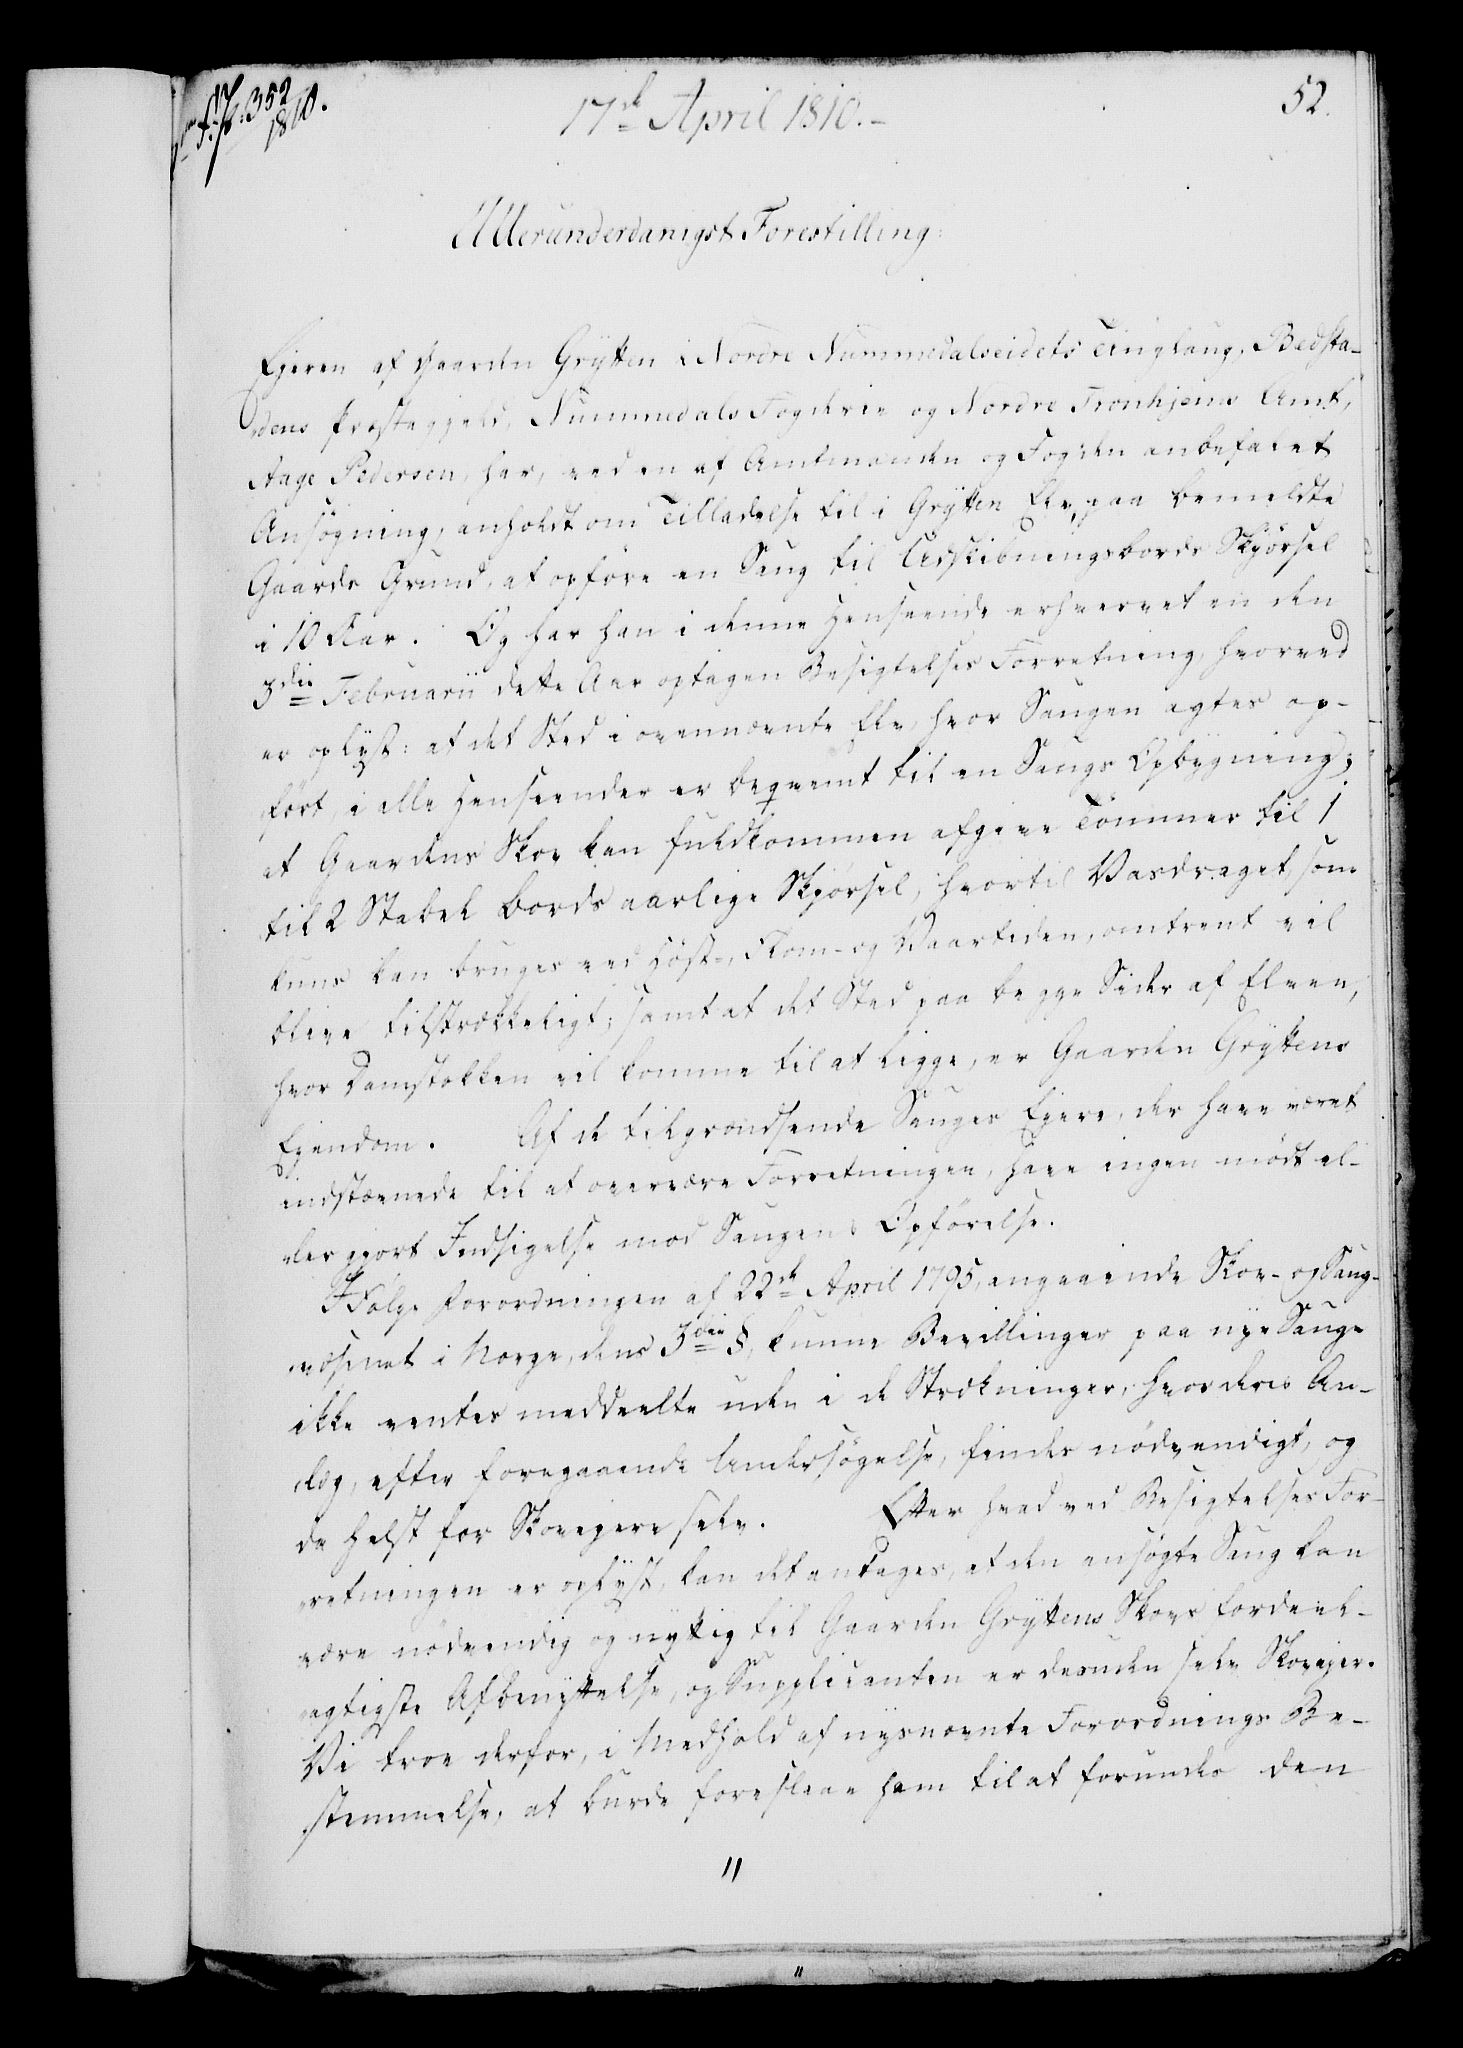 352
1810.
17de April 1810.-
52.
Allerunderdanigst Forestilling:
Ejeren af Gaarden Grÿtten i Nordre Nummedalseidets Tinglaug, Bedsta-
dens Præstegjeld, Nummedals Fogderie og Nordre Tronhjems Amt,
Aage Pedersen, har, ved en af Amtmanden og Fogden anbefalet
Ansögning, anholdt om Tilladelse til i Grÿtten Elv, paa bemeldte
Gaards Grund, at opföre en Saug til Udskibningsbords Skjørsel
i 10 Aar. Og har han i denne Henseende erhvervet en den
3die Februarii dette Aar optagen Besigtelses Forretning, hvorved
er oplÿst: at det Sted i ovennævnte Elv, hvor Saugen agtes op-
fört, i alle Henseender er beqvemt til en Saugs Opbÿgning;
at Gaardens Skov kan fuldkommen afgive Tömmer til 1
til 2 Stabel Bords aarlige Skjørsel, hvortil Vasdraget, som
kuns kan bruges ved Höst-, Flom- og Vaartiden, omtrent vil
blive tilstrækkeligt; samt at det Sted paa begge Sider af Elven,
hvor Damstokken vil komme til at ligge, er Gaarden Grÿttens
Ejendom. Af de tilgrændsende Sauges Ejere, der have været
indstævnede til at overvære Forretningen, have ingen mödt el-
ler gjort Indsigelse mod Saugens Opförelse.
I Fölge Forordningen af 22de April 1795, angaaende Skov- og Saug-
væsenet i Norge, dens 3die §, kunne Bevillinger paa nÿe Sauge
ikke ventes meddeelte uden i de Strækninger, hvor deres An-
læg, efter foregaaende Undersögelse, findes nödvendigt, og
da helst for Skovejere selv. Efter hvad ved Besigtelses For-
retningen er oplÿst, kan det antages, at den ansögte Saug kan
være nodvendig og nÿttig til Gaarden Grÿttens Skovs fordeel-
agtigste Afbenÿttelse, og Supplicanten er desuden selv Skovejer.
Vi troe derfor, i Medhold af nÿsnævnte Forordnings Be-
stemmelse, at burde foreslaae ham til at forundes den
"
"